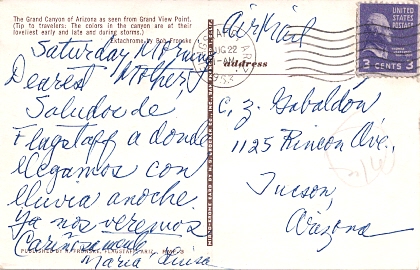 The Grand Canyon of Arizona as seen from Grand View Point.
(Tip to travelers: The colors in the canyon are at their
loveliest early and late and during storms.)
Ektachrome by Bob Fronske
Saturday Morning
Dearest Mother,
Saludos de
Flagstaff a donde
llegamos con
lluvia anoche.
Ya nos veremos
Cariñosamente
María Luisa
PUBLISHED BY R. FRONSKE, FLAGSTAFF, ARIZ.
AUG 22
Air Mail
address
C. Z. Gabaldón
1125 Rincon Ave.,
Tucson,
Arizona
UNITED STATES POSTAGE
3 CENTS 3